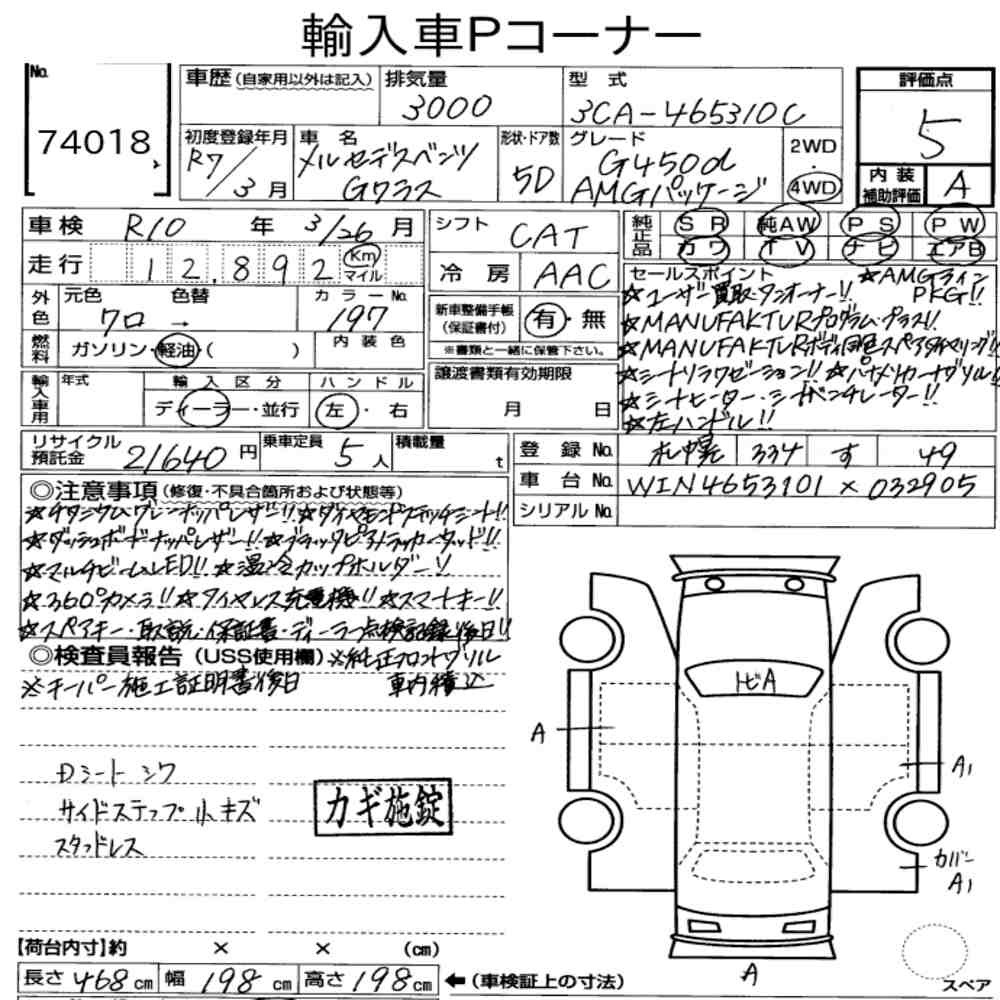 輸入車Pコーナー
No. 74018
車歴(自家用以外は記入) 排気量 3000 型式 3CA-465310C
評価点 5
初度登録年月 R7/3月 車名 メルセデスベンツ Gクラス 形状・ドア数 5D グレード G450d AMGパッケージ 2WD 4WD
内装補助評価 A
車検 R10年 3/26月
走行 12,892 Km マイル
外色 元色 クロ → 色替 カラーNo. 197
燃料 ガソリン・軽油・( ) 内装色
輸入車用 年式 輸入区分 ディーラー・並行 ハンドル 左・右
シフト CAT
冷房 AAC
新車整備手帳(保証書付) 有・無
※書類と一緒に保管下さい。
譲渡書類有効期限
月 日
純正品 SR 純AW PS PW
カワ TV ナビ エアB
セールスポイント ★AMGライン PKG!!
★ユーザー買取・ワンオーナー!!
★MANUFAKTURプログラム・プラス!!
★MANUFAKTURボディ同色スペアタイヤリング!!
★シートリラクゼーション!! ★パナメリカーナグリル!!
★シートヒーター・シートベンチレーター!!
★左ハンドル!!
リサイクル預託金 21640円 乗車定員 5人 積載量 t
登録No. 札幌 334 す 49
車台No. W1N4653101 x 032905
シリアルNo.
◎注意事項(修復・不具合箇所および状態等)
★チタニウムグレーナッパレザー!! ★ダイヤモンドステッチシート!!
★ダッシュボードナッパレザー!! ★ブラックピアノラッカーウッド!!
★マルチビームLED!! ★温冷カップホルダー!!
★360°カメラ!! ★ワイヤレス充電機!! ★スマートキー!!
★スペアキー・取説・保証書・ディーラー点検記録後日!!
◎検査員報告(USS使用欄) ※純正フロントグリル
※キーパー施工証明書後日 車内積込
Dシート シワ
サイドステップ 小キズ
スタッドレス
カギ施錠
トビA
A
A1
カバー A1
A
スペア
【荷台内寸】約 × × (cm)
長さ 468 cm 幅 198 cm 高さ 198 cm ←(車検証上の寸法)